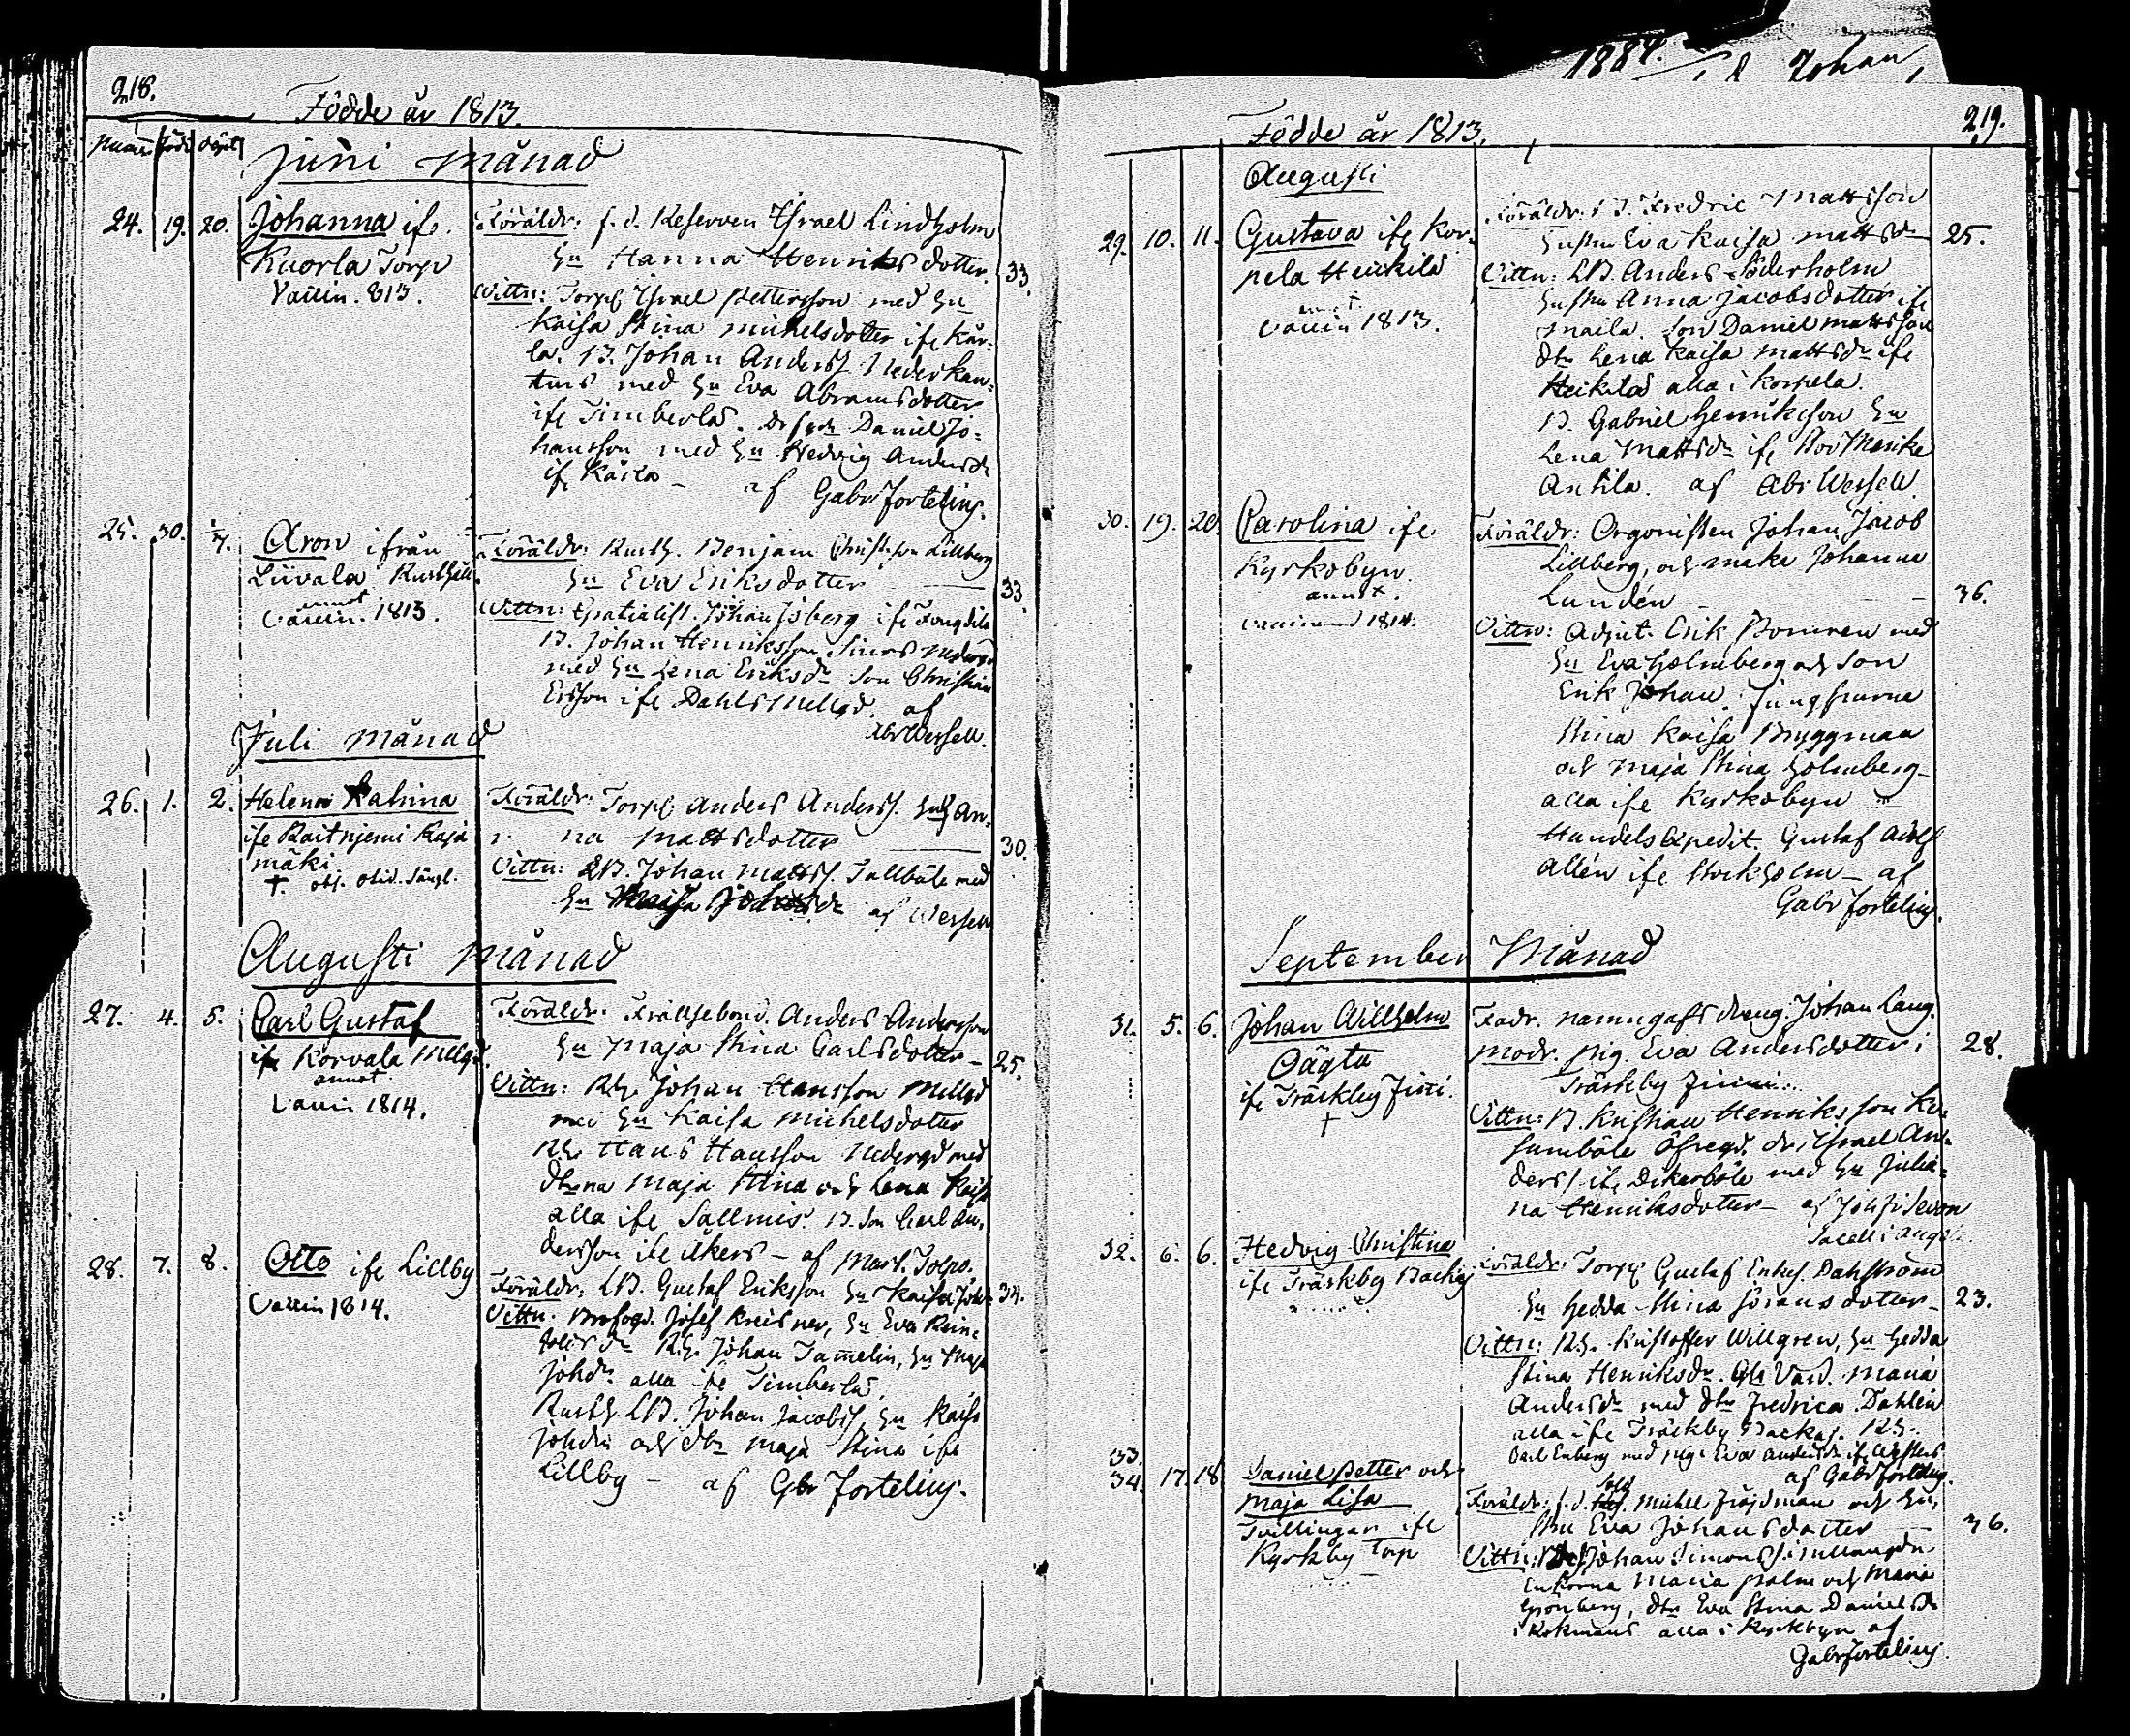 218.
Födde år 1813.
Juni Månad
24. 19. 20. Johanna ifr.
Kuorla Torp
Vaccin. 813.
Föräldr: f. d. Reserven Israel Lindholm
hu Hanna Henriks dotter. 33.
Vittn: Torp Israel Pettersson med hu
Kaisa Stina Michelsdotter ifr Kår-
la. B. Johan Anderss Nederkan-
tus med hu Eva Abramsdotter
ifr Timberla. Daniel Jo-
hansson med hu Hedvig Andersdr
ifr Kårla - af Gabr Forteling.
25. 30. 1/7. Aron ifrån
Liivala Rusthåll.
annot
Vaccin. 1813.
Föräldr: Rusth. Benjam Christ.son Lillberg
hu Eva Eriksdotter 33.
Vittn: Gratialist. Johan Isberg ifr
B. Johan Henriksson
med hu Lena Eriksdr Son Christian
Ersson ifr Dahls Mellgd. af
Abr Wessell.
Juli Månad
26. 1. 2. Helena Katrina
ifr Raitnjemi Kaja
mäki
†.
Föräldr: Torp Anders Anderss. hu An-
na Mattsdotter 30.
Vittn: LB. Johan Matts. Tallbäle med
hu Kaisa af Wessell
Augusti Månad
27. 4. 5. Carl Gustaf
ifr Korvala Mellgd.
annot
Vaccin 1814.
Föräldr: Frälsebond. Anders Andersson
hu Maja Stina Carlsdotter - 25.
Vittn: Rh. Johan Hansson Mellgd
med hu Kaisa Michelsdotter
Rh. Hans Hansson Nedergd med
dtrna Maja Stina och Lena Kaisa
alla ifr Sallmis. B. Son Carl An-
dersson ifr Åkers - af Mart. Tolpo.
28. 7. 8. Otto ifr Lillby
Vaccin 1814.
Föräldr: LB. Gustaf Eriksson hu Kaisa Johdr 34.
Vittn. Josef Kreisner, hu Eva Rein-
holdsdr Rh. Johan Tamelin, hu Maja
Johdr. alla ifr Timberla.
Rusth LB. Johan Jacobss, hu Kaisa
Johdr och dtr Maja Stina ifr
Lillby - af Gbr Forteling.
1884.
Johan,
219.
Födde år 1813.
Augusti
29. 10. 11. Gustava ifr Kor-
pela Heikilä
annot
Vaccin 1813.
Föräldr: B. Fredric Mattsson
hustru Eva Kaisa Mattsdr 25.
Vittn: LB. Anders Söderholm
hustru Anna Jacobsdotter ifr
Maila. Son Daniel Mattsson
dtr Lena Kaisa Mattsdr ifr
Heikilä alla i Korpela.
B. Gabriel Henriksson hu
Lena Mattsdr ifr
Antila. af Abr Wessell
30. 19. 20. Carolina ifr
Kyrkobyn.
annot.
vaccinerad 1814.
Föräldr: Orgonisten Johan Jacob
Lillberg, och maka Johanna
Lundén - 36.
Vittn: Adjut. Erik Bomren med
hu Eva Holmberg och Son
Erik Johan. Jungfrurna
Stina Kaisa Bryggman
och Maja Stina Holmberg
alla ifr Kyrkobyn
Handels Expedit. Gustaf Adolf
Allén ifr Stockholm - af
Gabr Forteling.
September Månad
31. 5. 6. Johan Willhelm
Oägta
ifr Träskby Jini.
†
Fadr. namngafs dreng. Johan Lang.
Modr. pig. Eva Andersdotter i 28.
Träskby Jinni.
Vittn: B. Kristian Henriksson Ka-
sumböle Öfregd. dr. Israel An-
derss ifr Dikarböle med hu Julia-
na Henriksdotter - af Joh Fr Sevon
Sacell i
32. 6. 6. Hedvig Christina
ifr Träskby Backas
Föräldr: Torp Gustaf Dahlström
hu Hedda Stina Göransdotter - 23.
Vittn: Rh. Kristoffer Willgren, hu Hedda
Stina Henriksdr. Maria
Andersdr med dtr Fredrica Dahlén
alla ifr Träskby Backas. Rh.
Carl Enberg med pig. Eva Andersdr ifr
af Gabr Forteling.
33.
34. 17. 18. Daniel Petter och
Maja Lisa
Tvillingar ifr
Kyrkby Torp
Föräldr: f. d. Sold. Michel Fröjdman och hu-
stru Eva Johansdotter 36.
Vittn: Johan Simonss
Enkorna Maria Palm och Maria
Grönberg, dtr Eva Stina Danielsdr
i Kokmans alla i Kyrkbyn af
Gabr Forteling.